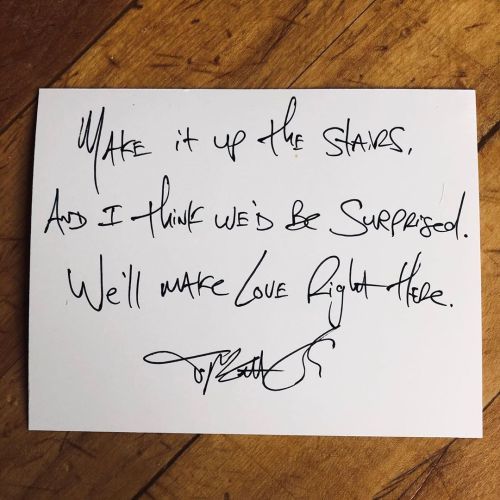 Make it up the stairs,
And I think we'd be surprised.
We'll make love right there.